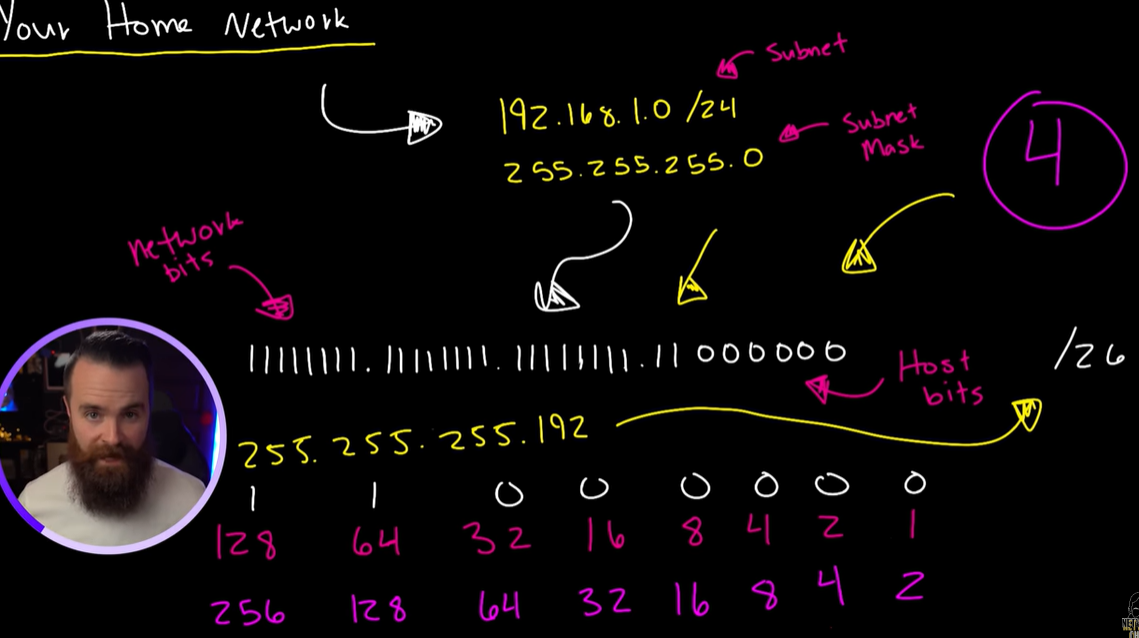 Your Home Network
Subnet
192.168.1.0 /24
Subnet
Mask
255.255.255.0
4
network
bits
11111111.11111111.11111111.11000000
/26
Host
bits
255.255.255.192
1 1 0 0 0 0 0 0
128 64 32 16 8 4 2 1
256 128 64 32 16 8 4 2